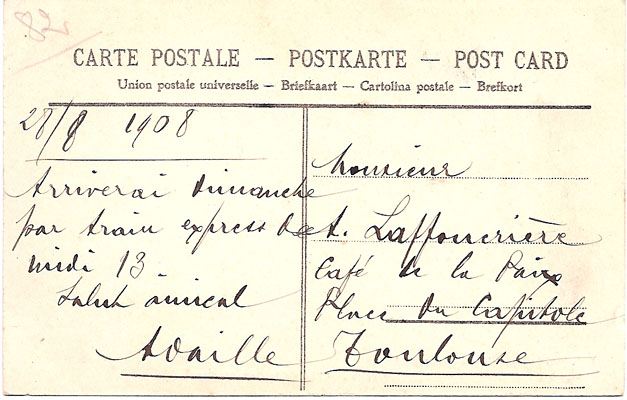 82
CARTE POSTALE — POSTKARTE — POST CARD
Union postale universelle — Briefkaart — Cartolina postale — Brefkort
28/8 1908
Arriverai Dimanche
par train express de
midi 13
Salut amical
Adaille
Monsieur
A. Laffourière
Café de la Paix
Place du Capitole
Toulouse